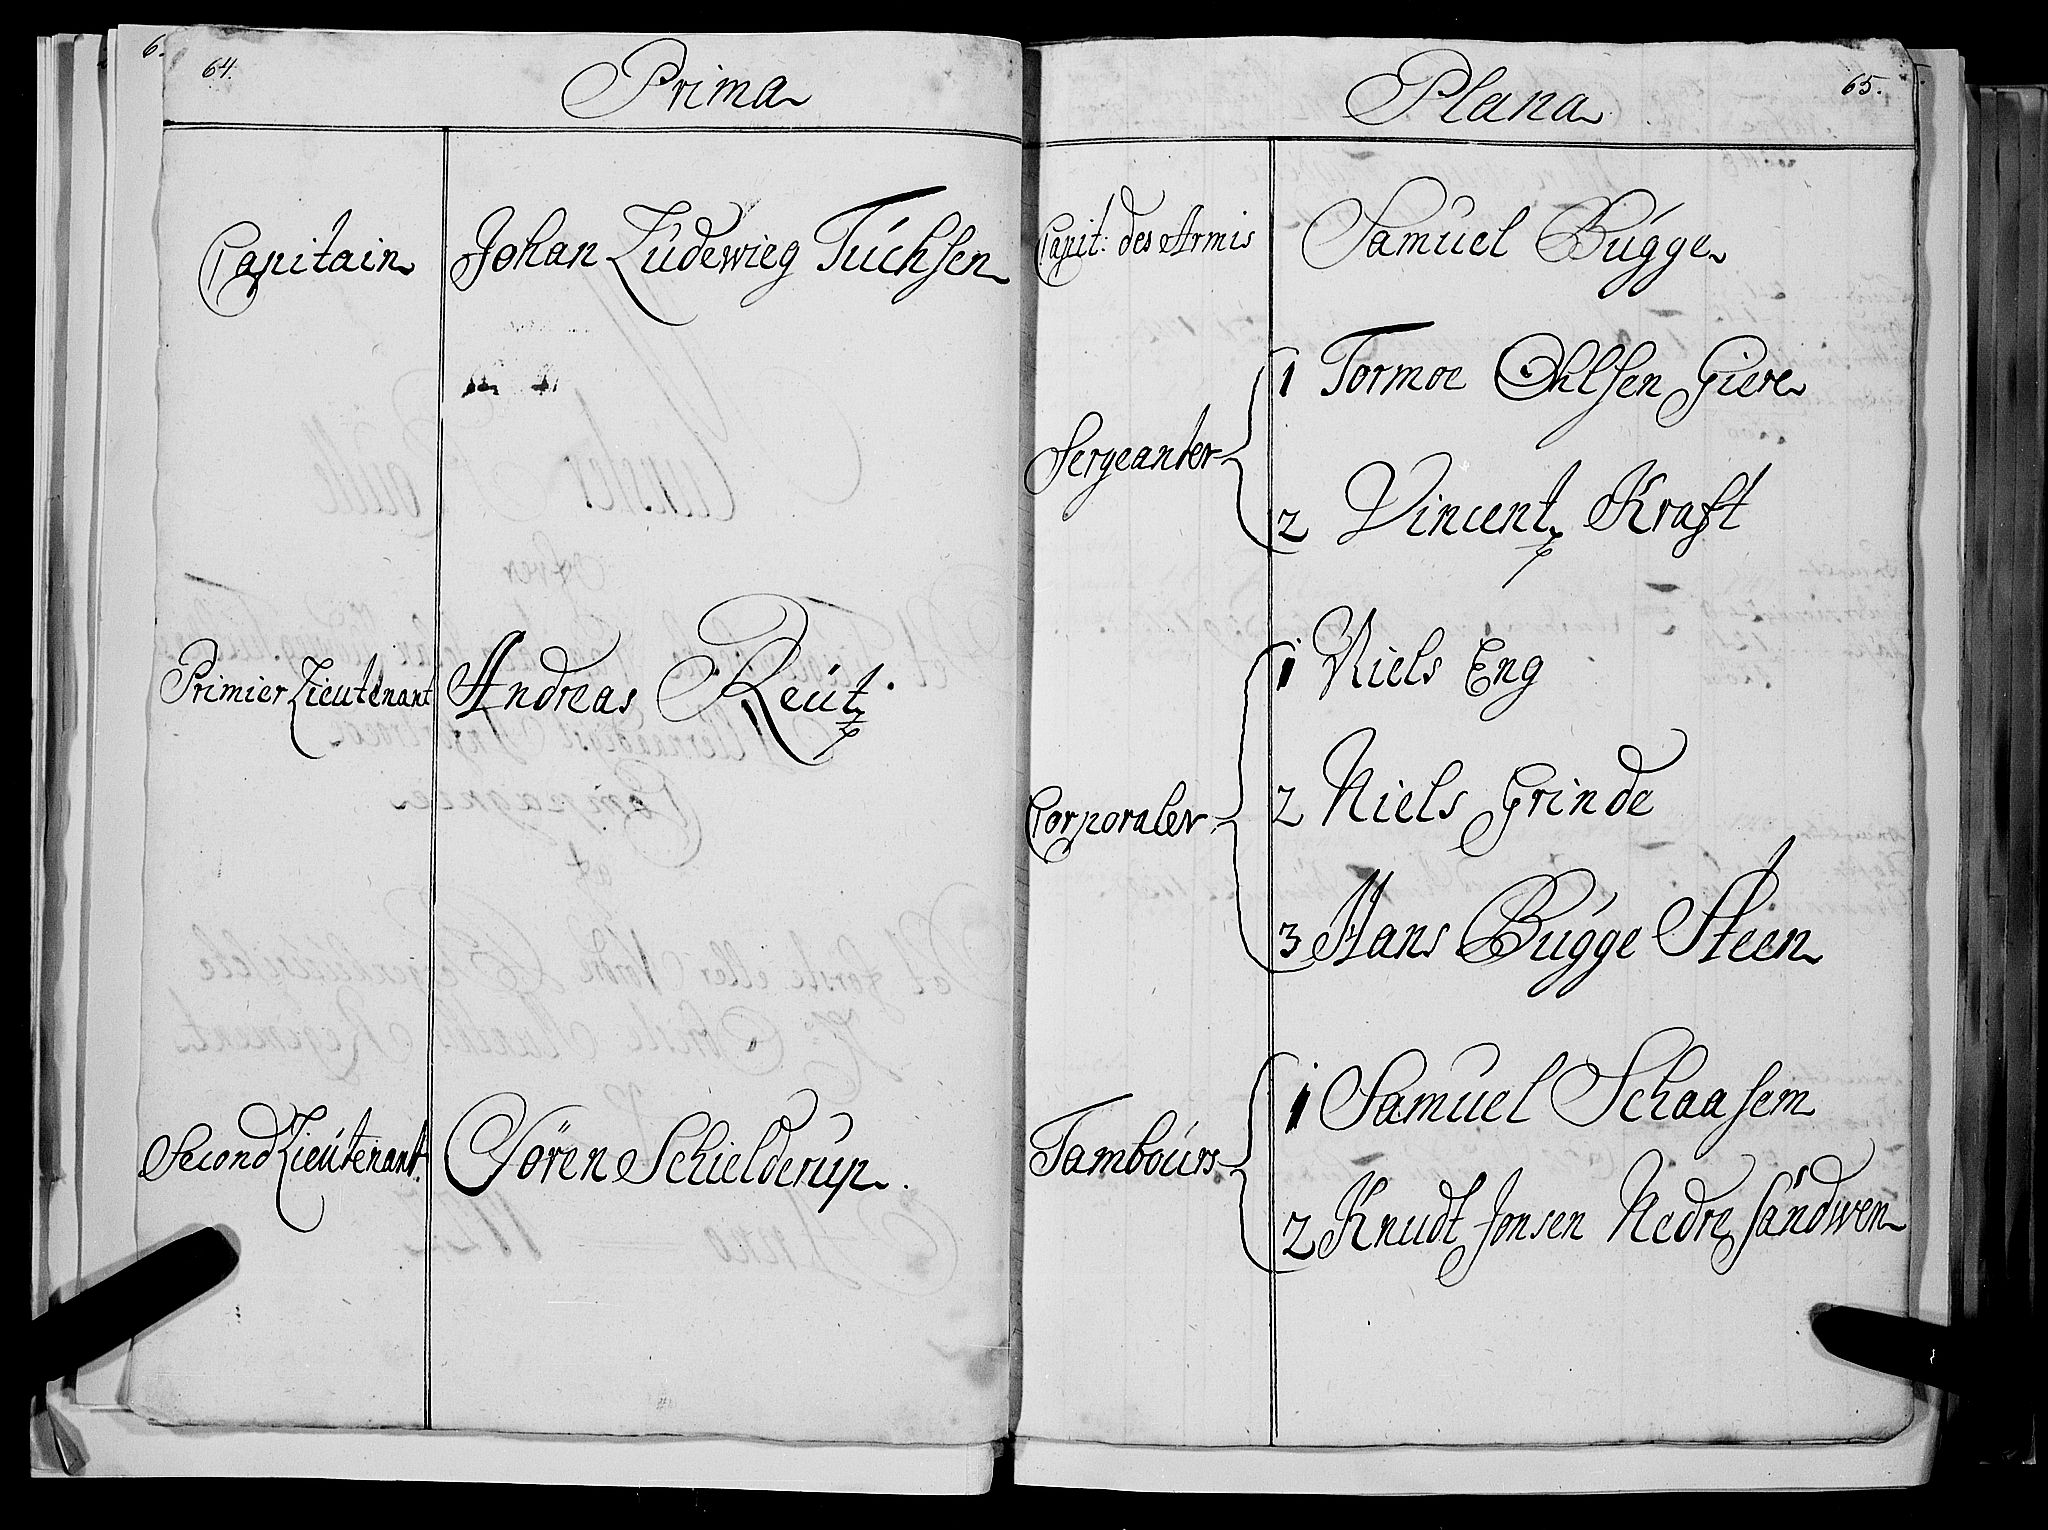 64.
Prima
Capitain Johan Ludewieg Tuchsen
Primier Lieutenant Andreas Reütz.
Second Lieütenant. Sören Schielderup.
65.
Plana
Capit: des Armis Samuel Bugge
Sergeanter
1 Tormoe Ohlsen Giere
2 Vincentz Kraft
Corporaler
1 Niels Eng
2 Niels Grinde
3 Hans Bugge Steen
Tambours
1 Samuel Schaasem
2 Knudt Jonsen Nedre Sandwen